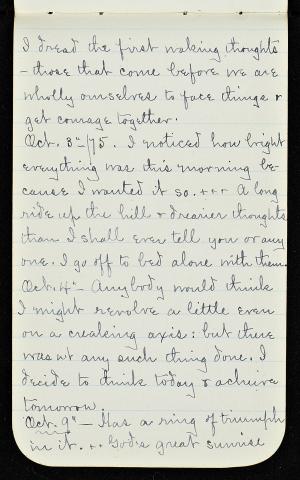 I dread the first waking thoughts
- those that come before we are
wholly ourselves to face things &
get courage together.
Oct. 3" /75. I noticed how bright
everything was this morning be-
cause I wanted it so. +++ A long
ride up the hill & drearier thoughts
than I shall ever tell you or any
one. I go off to bed alone with them.
Oct. 4" - Anybody would think
I might revolve a little even
on a creaking axis: but there
wasn't any such thing done. I
decide to think today & achieve
tomorrow.
Oct. 9" - Has a ring of triumph
in it. ++ God's great sunrise